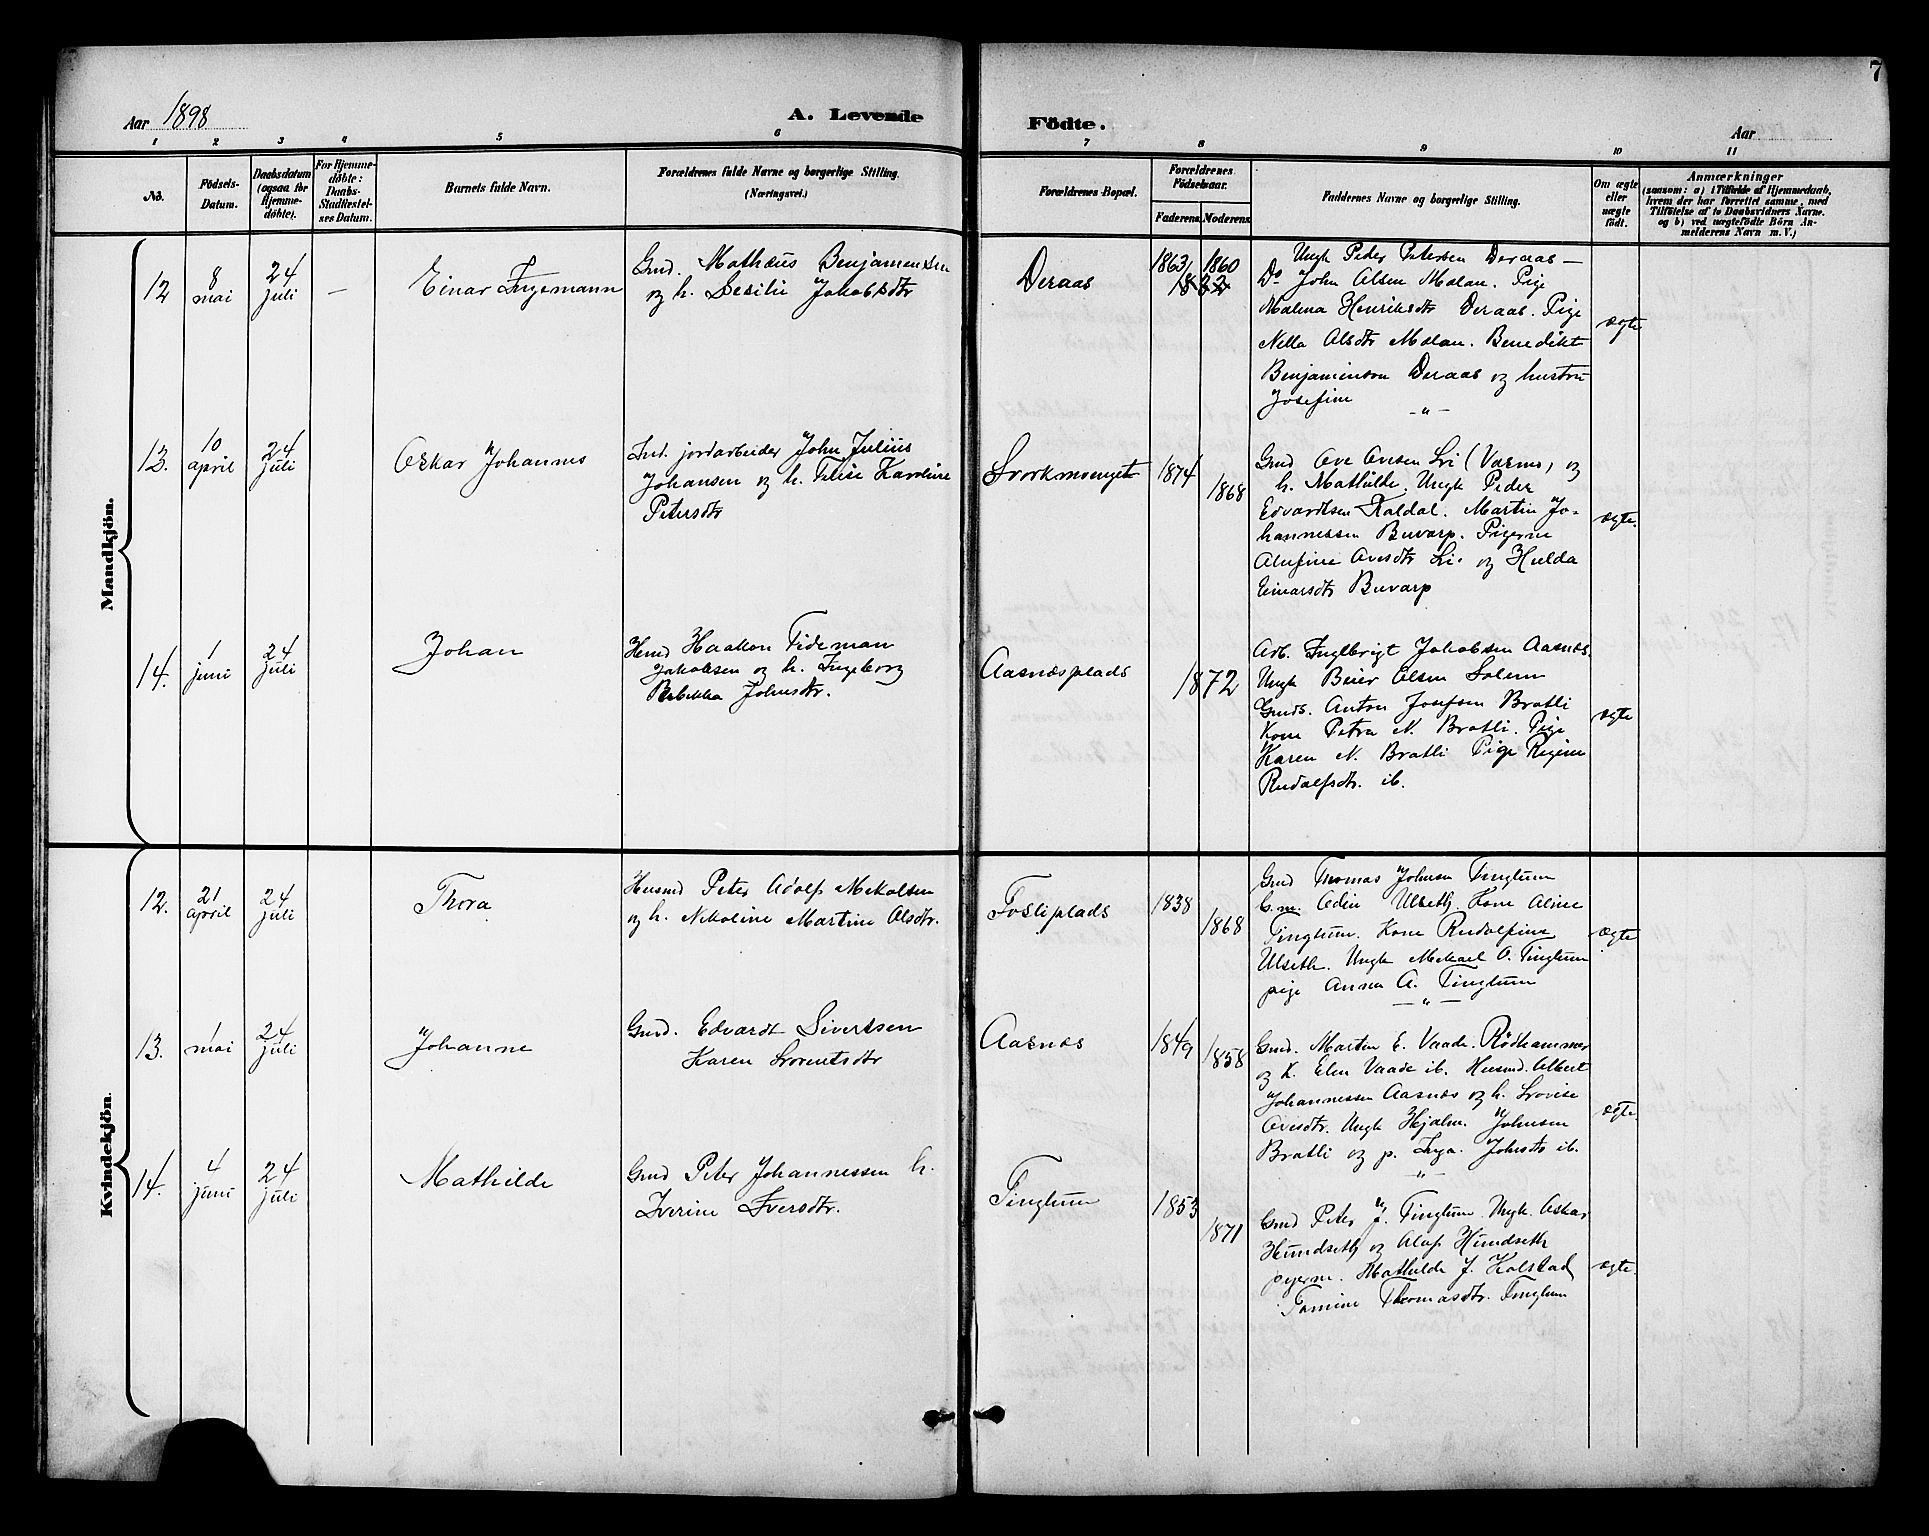 7
Aar 1898
A. Levende
Födte.
Aar
1 2 3 4 5 6
7 8 9 10 11
No.
Födsels-
Datum.
Daabsdatum
(ogsaa for
Hjemme-
döbte).
For Hjemme-
döbte:
Daabs-
Stadfæstel-
ses Datum.
Barnets fulde Navn.
Forældrenes fulde Navne og borgerlige Stilling.
(Næringsvei.)
Forældrenes Bopæl.
Forældrenes
Födselsaar.
Faderens. Moderens.
Faddernes Navne og borgerlige Stilling.
Om ægte
eller
uægte
født.
Anmærkninger
(saasom: a) i Tilfælde af Hjemmedaab,
hvem der har forrettet samme, med
Tilföielse af to Daabsvidners Navne.
og b) ved uægtefödte Börn An-
melderens Navn m. V.)
Mandkjön.
12
8
mai
24
juli
—
Einar Ingemann
Gmd. Mathæus Benjaminsen
og h. Desilie Jakobsdtr
Deraas
1863 1860
Ungk Peder Petersen Deraas —
Do John Olsen Molan. Pige
Malena Henriksdtr Deraas. Pige
Nella Olsdtr Molan. Benedikt
Benjaminsen Deraas og hustru
Josefine
—"—
ægte
13.
10
april
24
juli
Oskar Johannes
Ind. jordarbeider John Julius
Johansen og h. Karoline
Petersdtr
Svorkmoenget
1874
1868
Gmd Ove Ovesen Li (Værnes) og
h. Mathilde. Ungk Peder
Edvardtsen Kaldal. Martin Jo-
hannessen Buvarp. Pigerne
Olufine Ovesdtr Li. og Hulda
Einarsdtr Buvarp
ægte.
14.
1
juni
24
juli
Johan
Hmd Haakon Tideman
Jakobsen og h. Ingeborg
Rebekka Johnsdtr.
Aasnæsplads
1872
Arb. Inglbrigt Jakobsen Aasnæs.
Ungk Beier Olsen Solem
Gmds. Anton Josefsen Bratli
Kone Petra N. Bratli. Pige
Karen N. Bratli Pige Regine
Rudolfsdtr. ib.
ægte
Kvindekjön.
12.
21
april
24
juli
Thora
Husmd Peter Adolf Mekalsen
og h. Nikoline Martine Olsdtr.
Fosliplads
1838
1868
Gmd Thomas Johnsen Tinglum
G.m. Odin Ulseth, Kone Oline
Tinglum. Kone Rudolfine
Ulseth. Ungk Mekael O. Tinglum
pige Anna A. Tinglum
—"—
ægte
13.
1
mai
24
juli
Johanne
Gmd. Edvardt Sivertsen
Karen Lorentsdtr
Aasnes
1849
1858
Gmd. Martin E. Vaade. Rödhammer
og K. Elen Vaade ib. Husmd. Albert
Johannessen Aasnæs og h. Lovise
Ovesdtr. Ungk Hjalm. Johnsen
Bratli og p. Inga. Johsdtr ib.
"
ægte
14.
4
juni
24
juli
Mathilde
Gmd Peter Johannessen h.
Iverine Iversdtr.
Tinglum
1853
1871
Gmd Peter J. Tinglum. Ungk. Oskar
Hundseth og Olaf Hundseth
pigerne. Mathilde J. Kolstad
Tomine Thomasdtr. Tinglum
ægte.